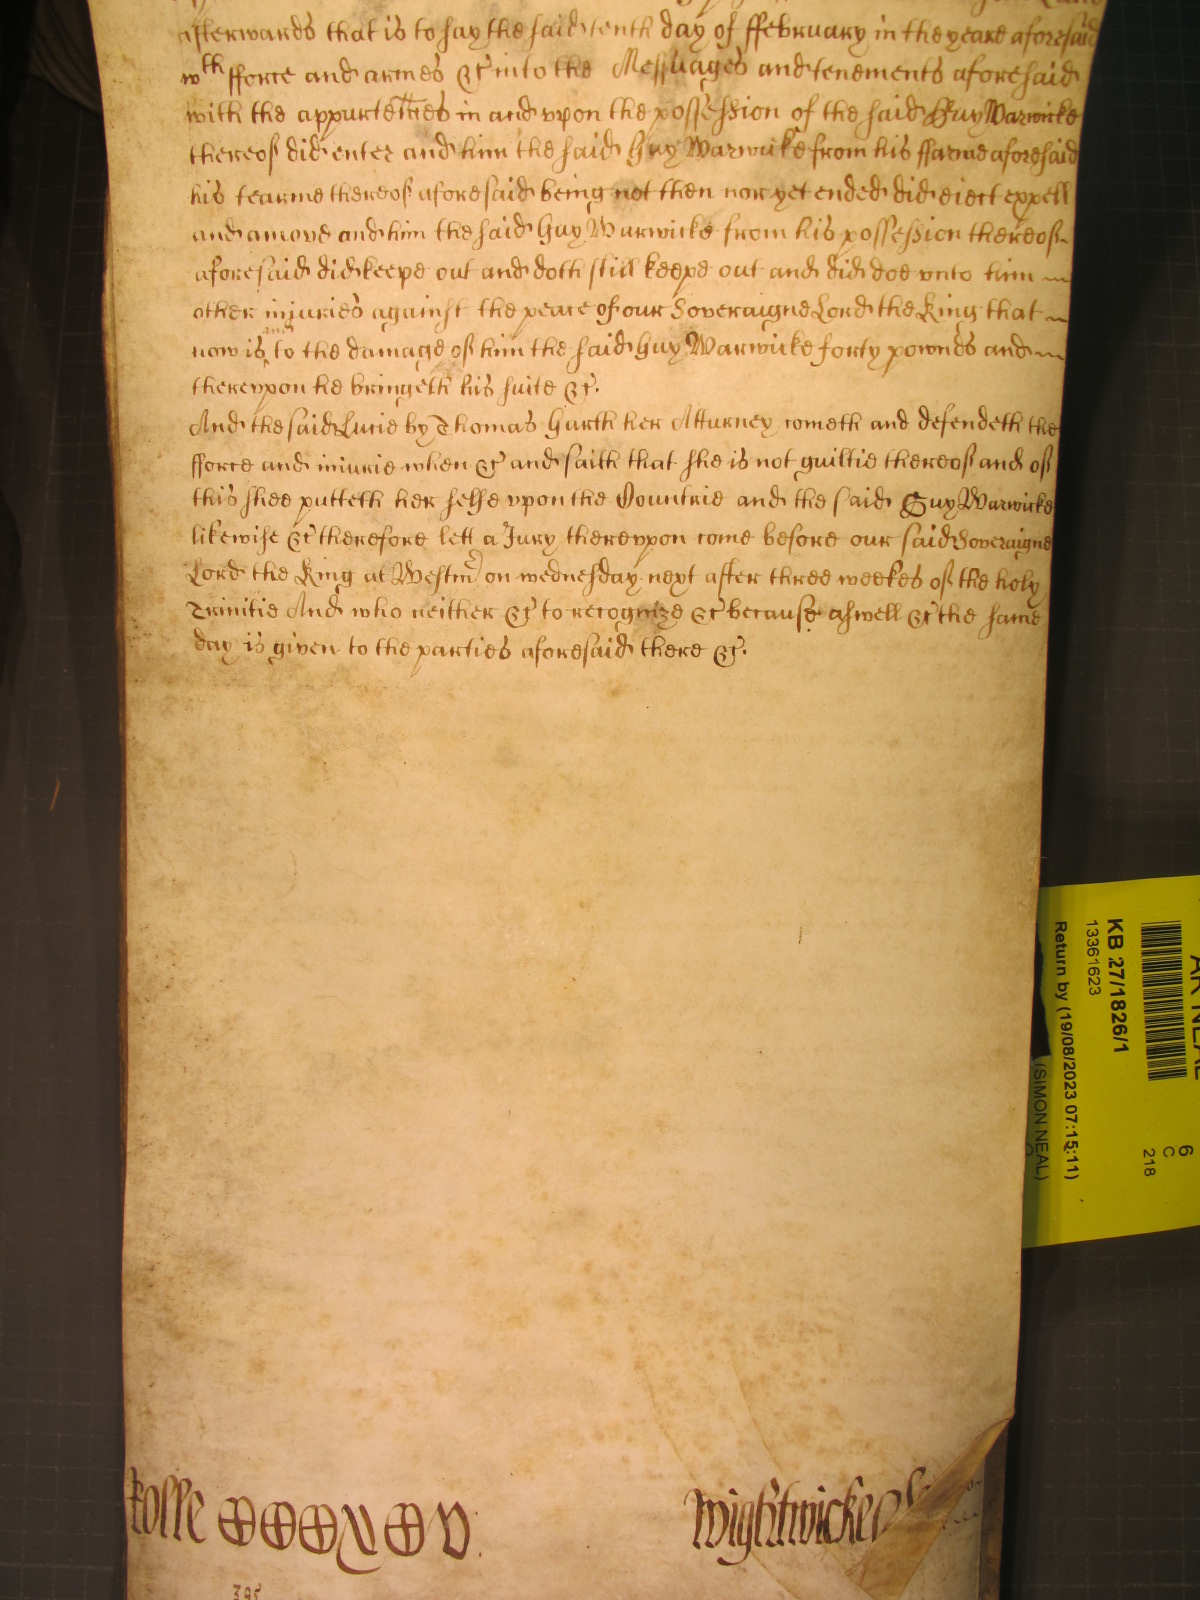 afterwards that is to say the said tenth day of ffebruary in the yeare aforesaid
wth fforce and armes &c into the Messuages and tenements aforesaid
with the appurtences in and vpon the possession of the said Guy Warwicke
thereof did enter and him the said Guy Warwicke from his ffarme aforesaid
his tearme thereof aforesaid being not then nor yet ended did eiect expell
and amove and him the said Guy Warwicke from his possession thereof
aforesaid did keepe out and doth still keepe out and did doe vnto him
other iniuries against the peace of our Soveraigne Lord the King that
now is and to the damage of him the said Guy Warwicke forty pownds and
therevpon he bringeth his suite &c.
And the said Lucie by Thomas Garth her Atturney cometh and defendeth the
fforce and iniurie when &c and saith that she is not guiltie thereof and of
this shee putteth her selfe vpon the Countrie and the said Guy Warwicke
likewise &c therefore lett a Jury therevpon come before our said Soveraigne
Lord the King at Westmr on wednesday next after three weekes of the holy
Trinitie And who neither &c to recognize &c because aswell &c the same
day is given to the parties aforesaid there &c.
Rolle CCCXCV.
Wightwicke
395
KB 27/1826/1
13361623
Return by (19/08/2023 07:15:11)
(SIMON NEAL)
6
C
218